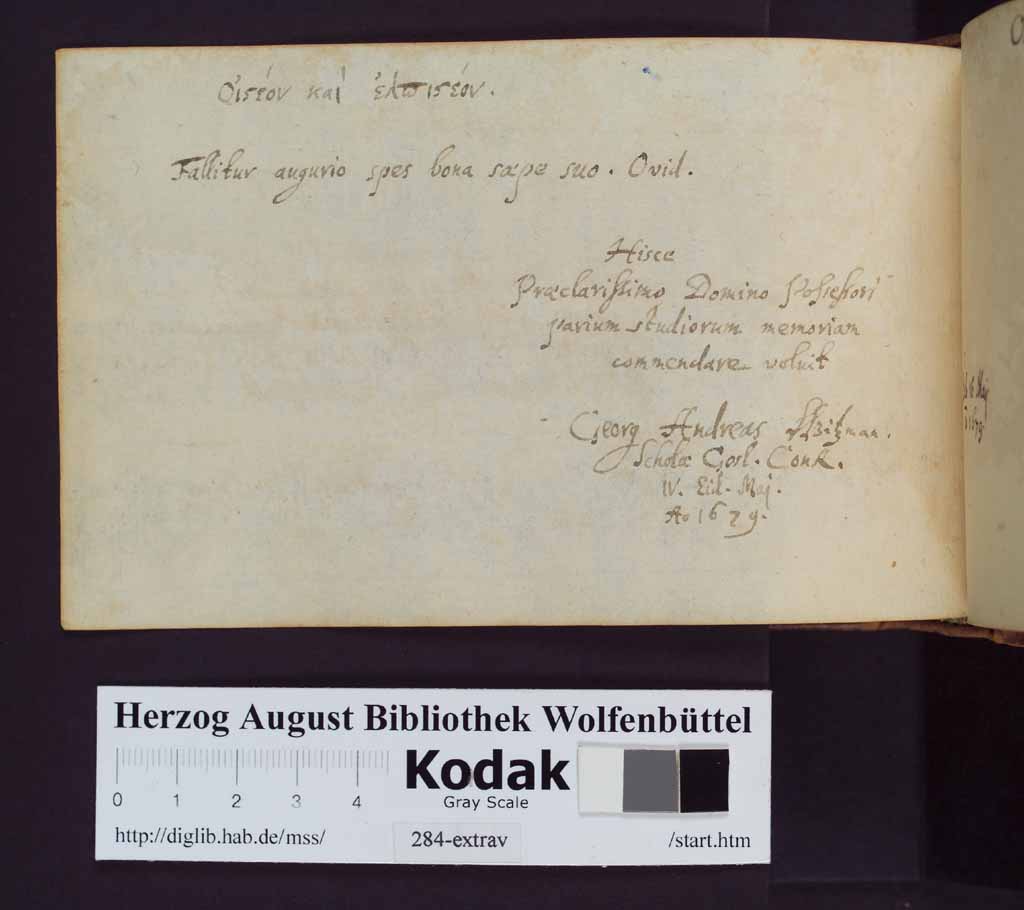 Οἰστέον καὶ ἐλπιστέον.
Fallitur augurio spes bona sæpe suo. Ovid.
Hisce
Præclarissimo Domino Possessori
parium studiorum memoriam
commendare voluit
Georg Andreas
Scholæ Gosl. ConR.
IV. Eid. Maj.
Ao 1679.
Herzog August Bibliothek Wolfenbüttel
Kodak
Gray Scale
0 1 2 3 4
http://diglib.hab.de/mss/ 284-extrav /start.htm